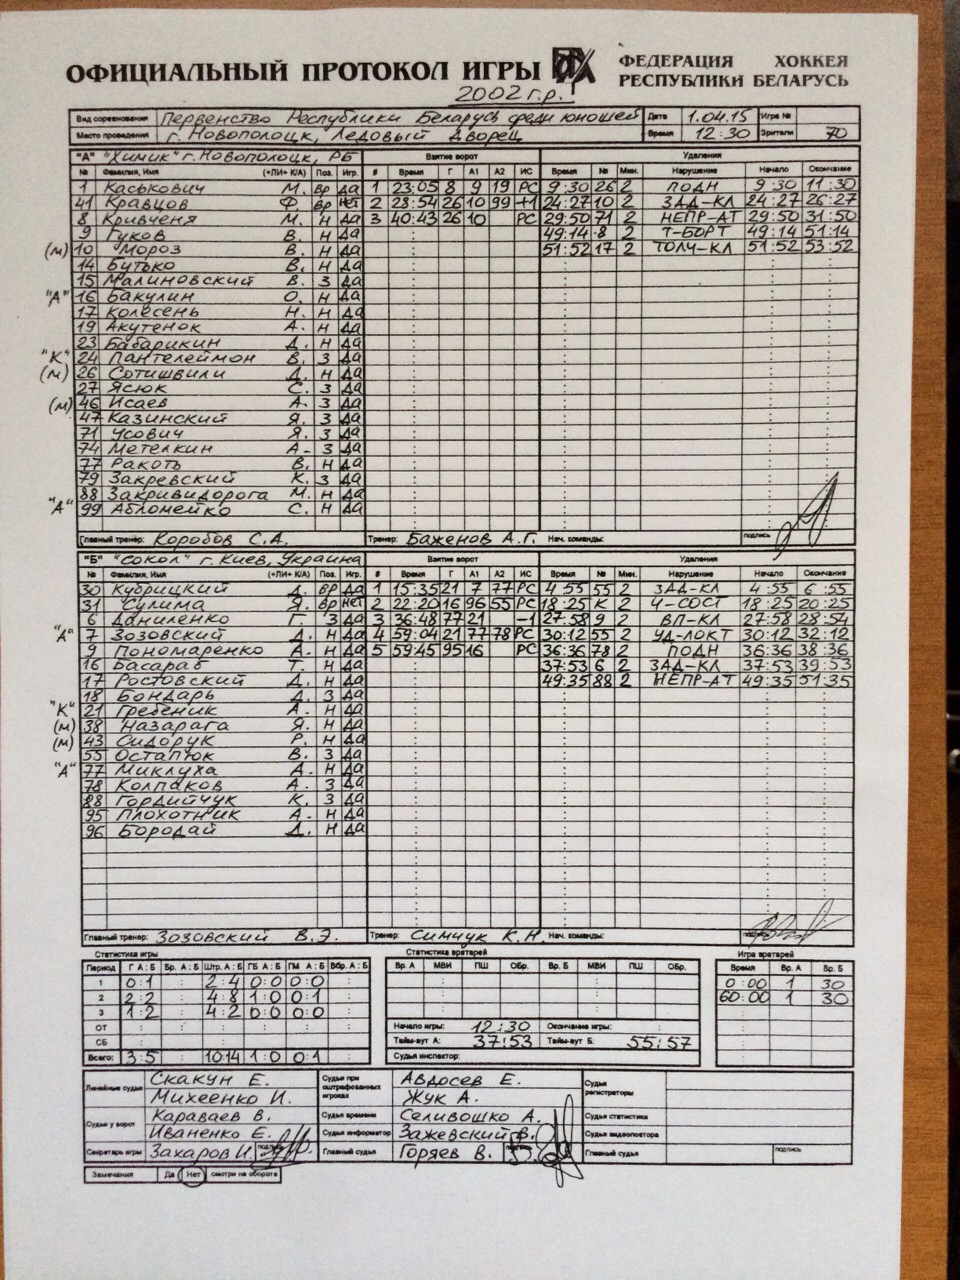 ОФИЦИАЛЬНЫЙ ПРОТОКОЛ ИГРЫ ФЕДЕРАЦИЯ ХОККЕЯ РЕСПУБЛИКИ БЕЛАРУСЬ
2002 г.р.
Вид соревнования Первенство Республики Беларусь среди юношей Дата 1.04.15 Игра №
Место проведения г. Новополоцк, Ледовый Дворец Время 12:30 Зрители 70
"А" "Химик" г. Новополоцк, РБ Взятие ворот Удаления
№ Фамилия, Имя (+ЛИ+ К/А) Поз. Игр. # Время Г А1 А2 ИС Время № Мин. Нарушение Начало Окончание
1 Каськович М. вр да 1 23:05 8 9 19 РС 9:30 26 2 ПОДН 9:30 11:30
41 Кравцов Ф. вр нет 2 28:54 26 10 99 +1 24:27 10 2 ЗАД-КЛ 24:27 26:27
8 Кривченя М. н да 3 40:43 26 10 РС 29:50 71 2 НЕПР-АТ 29:50 31:50
9 Гуков В. н да 49:14 8 2 Т-БОРТ 49:14 51:14
(м) 10 Мороз В. н да 51:52 17 2 ТОЛЧ-КЛ 51:52 53:52
14 Бутько В. н да
15 Малиновский В. З да
"А" 16 Бакулин О. н да
17 Колесень Н. н да
19 Акутенок А. н да
23 Бабарикин Д. н да
"К" 24 Пантелеймон В. З да
(м) 26 Сотишвили Д. н да
27 Ясюк С. З да
(м) 46 Исаев А. З да
47 Казинский Я. З да
71 Усович Я. З да
74 Метелкин А. З да
77 Ракоть В. н да
79 Закревский К. З да
88 Закривидорога М. н да
"А" 99 Абломейко С. н да
Главный тренер: Коробов С.А. Тренер: Баженов А.Г. Нач. команды: подпись
"Б" "Сокол" г. Киев, Украина Взятие ворот Удаления
№ Фамилия, Имя (+ЛИ+ К/А) Поз. Игр. # Время Г А1 А2 ИС Время № Мин. Нарушение Начало Окончание
30 Кубрицкий Д. вр да 1 15:35 21 7 77 РС 4:55 55 2 ЗАД-КЛ 4:55 6:55
31 Сулима Я. вр нет 2 22:20 16 96 55 РС 18:25 К 2 Ч-СОСТ 18:25 20:25
6 Даниленко Г. З да 3 36:48 77 21 -1 27:58 9 2 ВП-КЛ 27:58 28:54
"А" 7 Зозовский Д. н да 4 59:04 21 77 78 РС 30:12 55 2 УД-ЛОКТ 30:12 32:12
9 Пономаренко А. н да 5 59:45 95 16 РС 36:36 78 2 ПОДН 36:36 38:36
16 Басараб Т. н да 37:53 6 2 ЗАД-КЛ 37:53 39:53
17 Ростовский Д. н да 49:35 88 2 НЕПР-АТ 49:35 51:35
18 Бондарь Д. З да
"К" 21 Гребеник А. н да
(м) 38 Назарага Я. н да
(м) 43 Сидорук Р. н да
55 Остапюк В. З да
"А" 77 Миклуха А. н да
78 Колпаков А. З да
88 Гордийчук К. З да
95 Плохотник А. н да
96 Бородай Д. н да
Главный тренер: Зозовский В.Э. Тренер: Симчук К.Н. Нач. команды:
Статистика игры Статистика вратарей Игра вратарей
Период Г А : Б Бр. А : Б Штр. А : Б ГБ А : Б ГМ А : Б Вбр. А : Б Вр. А МВИ ПШ ОБр. Вр. Б МВИ ПШ ОБр. Время Вр. А Вр. Б
1 0:1 2:4 0:0 0:0 0:00 1 30
2 2:2 4:8 1:0 0:1 60:00 1 30
3 1:2 4:2 0:0 0:0
ОТ
СБ
Всего: 3:5 10:14 1:0 0:1
Начало игры: 12:30 Окончание игры:
Тайм-аут А: 37:53 Тайм-аут Б: 55:57
Судья инспектор:
Линейные судьи Скакун Е. Судьи при оштрафованных игроках Авдосев Е. Судьи регистраторы
Михеенко И. Жук А.
Судьи у ворот Караваев В. Судья времени Селивошко А. Судья статистики
Иваненко Е. Судья информатор Зажевский В. Судья видеоповтора
Секретарь игры Захаров И. подпись Главный судья Горяев В. Главный судья подпись
Замечания Да Нет смотри на обороте